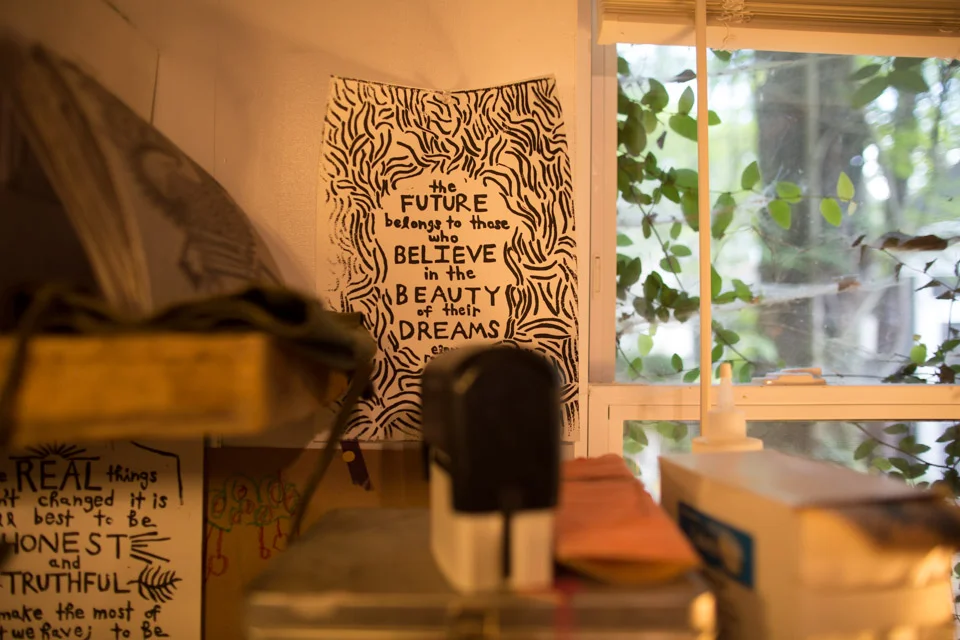 the
FUTURE
belongs to those
who
BELIEVE
in the
BEAUTY
of their
DREAMS
REAL things
changed it is
best to be
HONEST
and
TRUTHFUL
make the most of
we have; to be